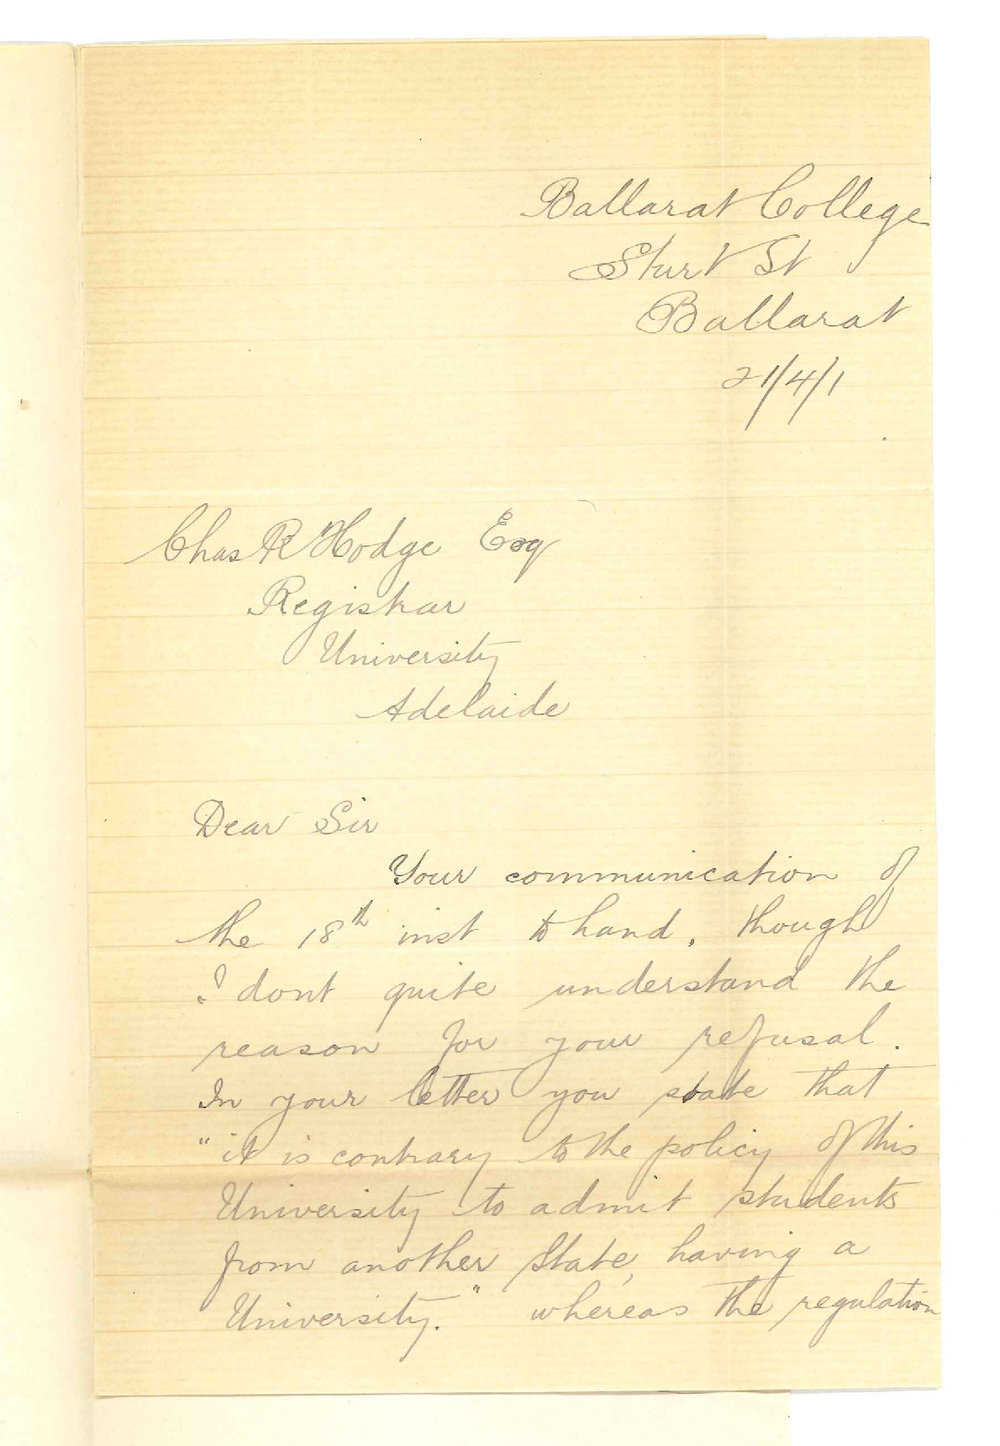 Ballarat College
Sturt St
Ballarat
21/4/1
Chas R Hodge Esq
Registrar
University
Adelaide
Dear Sir
Your communication of
the 18th inst to hand, though
I dont quite understand the
reason for your refusal.
In your letter you state that
"it is contrary to the policy of this
University to admit students
from another State, having a
University." whereas the regulation